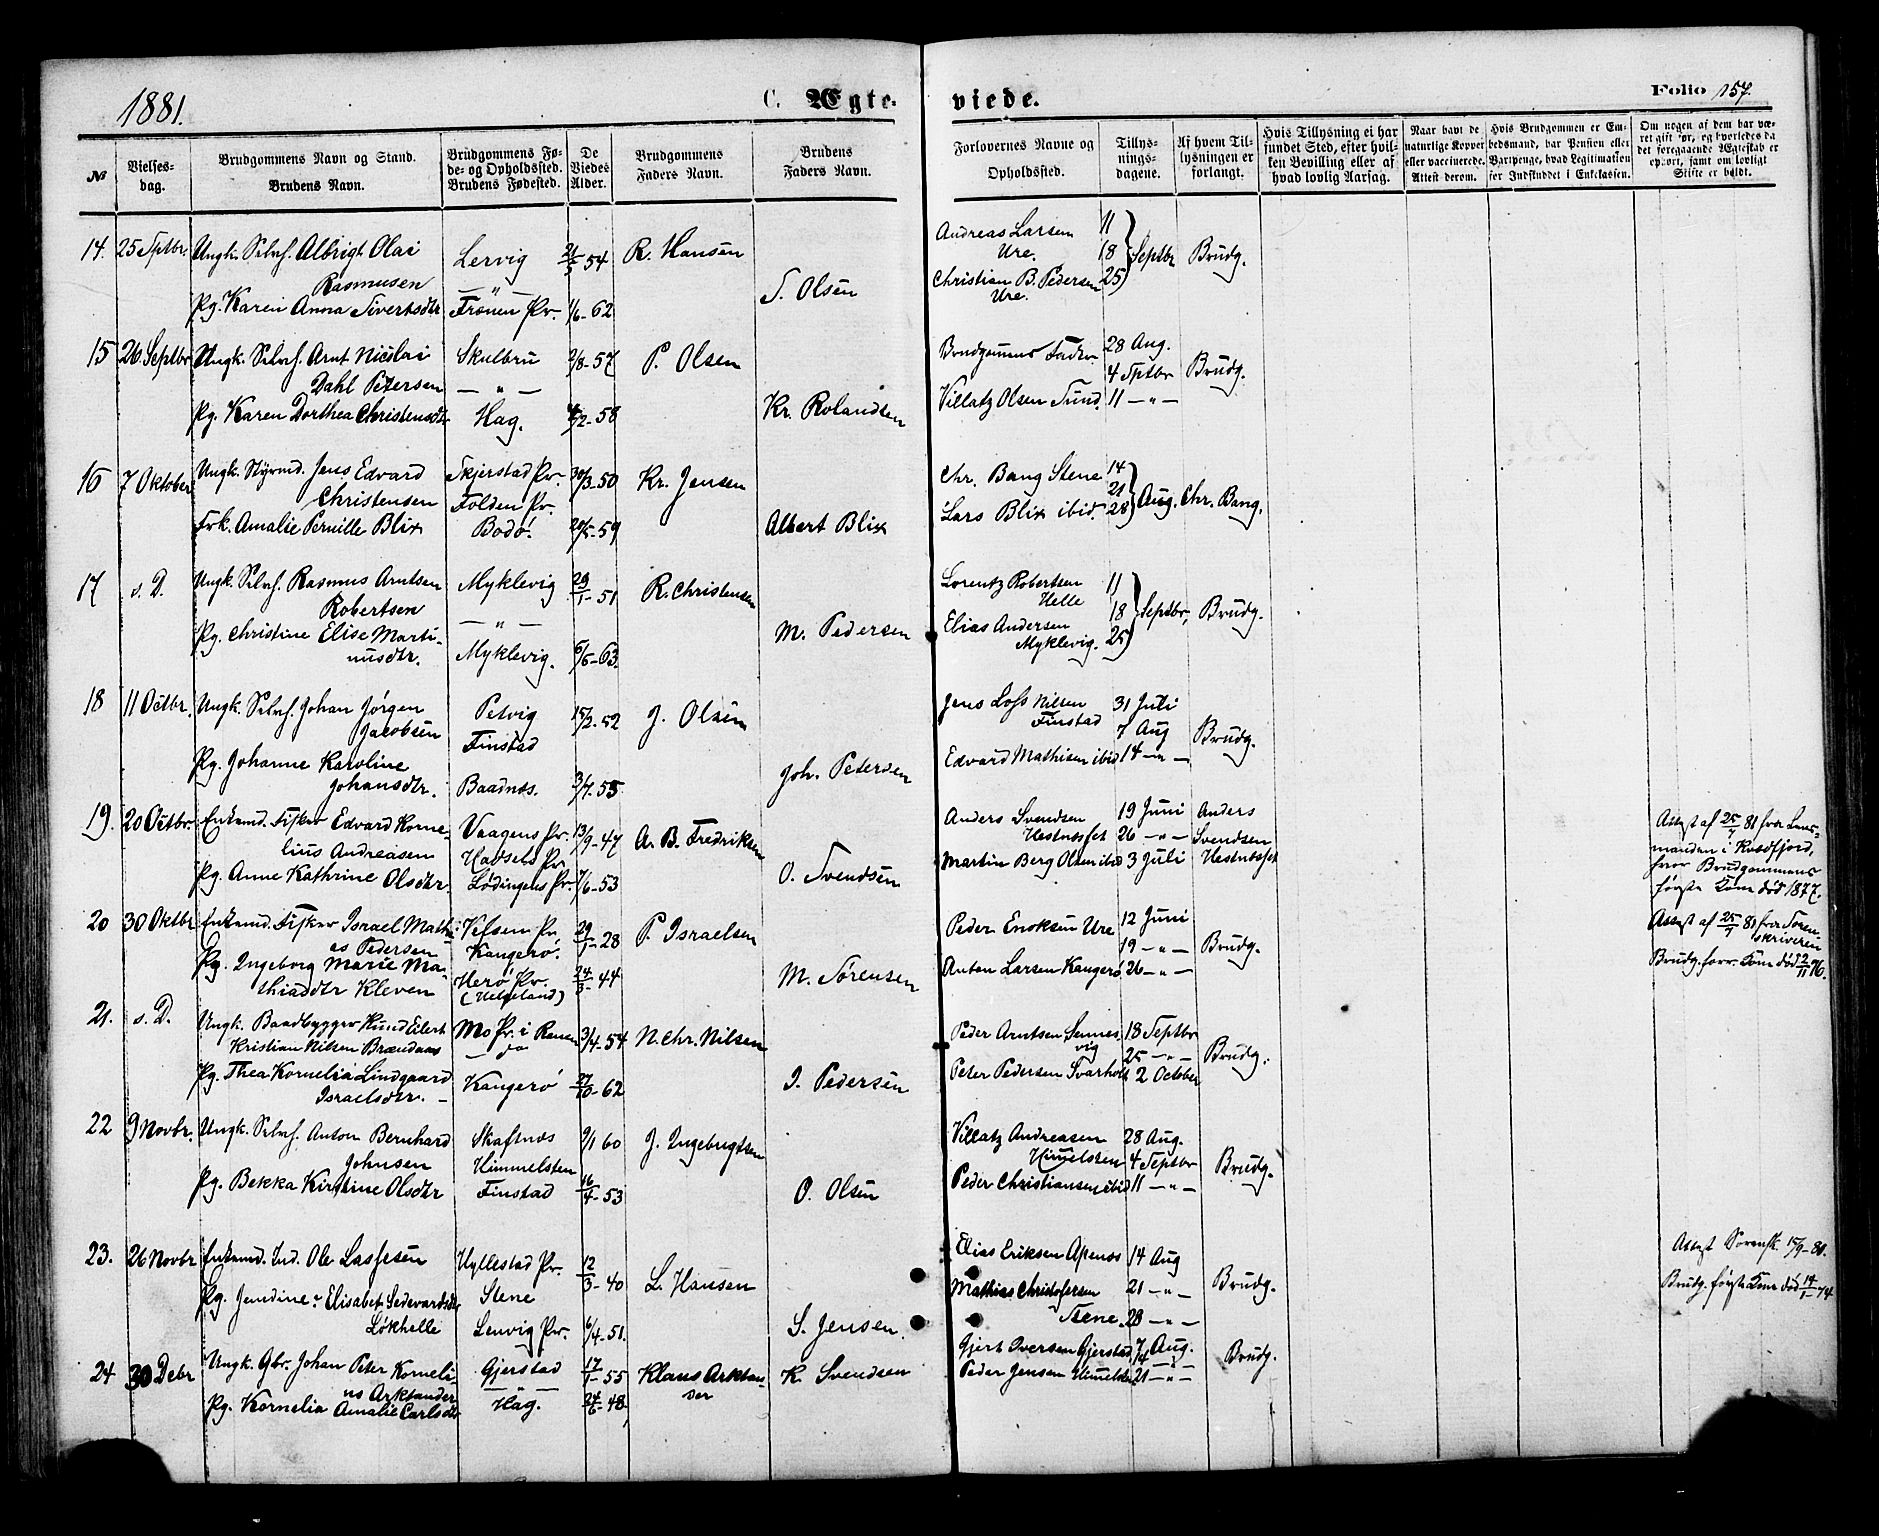 1881.
C. Ægte-
viede.
Folio 157.
№
Vielses-
dag.
Brudgommens Navn og Stand.
Brudens Navn.
Brudgommens Fø-
de- og Opholdssted.
Brudens Fødested.
De
Viedes
Alder.
Brudgommens
Faders Navn.
Brudens
Faders Navn.
Forlovernes Navne og
Opholdssted.
Tillys-
nings-
dagene.
Af hvem Til-
lysningen er
forlangt.
Hvis Tillysning ei har
fundet Sted, efter hvil-
ken Bevilling eller af
hvad lovlig Aarsag.
Naar havt de
naturlige Kopper
eller vaccinerede.
Attest derom.
Hvis Brudgommen er Em-
bedsmand, bar Pension eller
Vartpenge, hvad Legitimation
for Indskuddet i Enkekassen.
Om nogen af dem har væ-
ret gift før, og hvorledes da
det foregaaende Ægteskab er
ophørt, samt om lovligt
Skifte er holdt.
14. 25 Sptbr. Ungk. Selvf. Albrigt Olai Lervig 21/5 54 R. Hansen
Rasmusen — " —
Pg. Karen Anna Sivertsdtr Frænen Pr. 1/6-62 S. Olsen
Andreas Larsen 11
Ure. 18 Septbr Brudg.
Christian B. Pedersen 25
Ure.
15 26 Septbr Ungk. Selvf. Arnt Nicolai Skulbru 2/8-57 P. Olsen
Dahl Petersen — " —
Pg. Karen Dorthea Christensdtr Hag. 4/2-58 Kr. Rolandsen
Brudgommens Fader 28 Aug.
4 Sptbr Brudg.
Villatz Olsen Sund. 11 — " —
16 7 Oktober Ungk. Styrmd. Jens Edvard Skjerstad Pr. 30/3-50 Kr. Jensen
Christensen Folden Pr.
Frk. Amalie Pernille Blix Bodø. 20/5-59 Albert Blix
Chr. Bang Stene 14
21 Aug. Chr. Bang.
Lars Blix ibid. 28
17 s. D. Ungk. Selvf. Rasmus Arntsen Myklevig 29/1-51 R. Christensen
Robertsen — " —
Pg. Christine Elise Marti- M. Pedersen
nusdtr. Myklevig. 6/6-63.
Lorentz Robertsen 11
Helle 18 Septbr, Brudg.
Elias Andersen
Myklevig. 25
18 11 Octbr. Ungk. Selvf. Johan Jørgen Petvig 15/2-52 J. Olsen
Jacobsen Finstad
Pg. Johanne Karoline Joh. Petersen
Johansdtr. Baadnes. 3/7-55
Jens Loss Nilsen 31 Juli
Finstad 7 Aug Brudg.
Edvard Mathisen ibid 14 — " —
19. 20 Octbr. Enkemd. Fisker Edvard Korne- Vaagens Pr. 13/9-47 A. B. Fredriksen
lius Andreasen Hadsels Pr.
Pg. Anne Kathrine Olsdtr. Lødingens Pr. 7/6-53 O. Svendsen
Anders Svendsen 19 Juni Anders
Hestnesset 26 — " — Svendsen
Martin Berg Olsen ibid 3 Juli Hestnesset
Attest af 25/7 81 fra Lens-
manden i
hvor Brudgommens
første Kone død 1877.
20 30 Oktbr Enkemd. Fisker Israel Math- Velsen Pr. 29/1-28 P. Israelsen
es Pedersen Kangerø.
Pg. Ingeborg Marie Ma- Herø Pr. 24/3-44 M. Sørensen
thiasdtr Kleven (Helgeland)
Peder Enoksen Ure 12 Juni
19 — " — Brudg.
Anton Larsen Kangerø 26 — " —
Attest af 25/7 81 fra Soren-
skriveren
Brudg. forr. Kone død 2/11 76.
21. s. D. Ungk. Baadbygger Knud Eilert Mo Pr. i Ranen 3/4-54 N. Chr. Nilsen
Kristian Nilsen Brændaas — do
Pg. Thea Kornelia Lindgaard Kangerø 27/10-62 I. Pedersen
Israelsdtr.
Peder Arntsen Sennes- 18 Septbr
vig 25 — " — Brudg.
Peter Pedersen Svarholt 2 October
22 9 Novbr. Ungk. Selvf. Anton Bernhard Skaftnæs 9/1 60 J. Ingebrigtsen
Johnsen Himmelsten
Pg. Bekka Kirstine Olsdtr Finstad 16/4-53 O. Olsen
Villatz Andreasen 28 Aug.
Himelsten 4 Septbr Brudg.
Peder Christiansen ibid 11 — " —
23. 26 Novbr Enkemd. Ind. Ole Lassesen Hyllestad Pr. 12/3-40 L. Hansen
Pg. Jendine Elisabet Sedevardsdtr Stene
Løkhelle Lenvig Pr. 6/4-51. S. Jensen.
Elias Eriksen Apenes 14 Aug
Mathias Christofersen 21 — " — Brudg.
Stene. 28 — " —
Attest Sorensk. 15/9-81.
Brudg. første Kone død 14/1-74
24 30 Debr Ungk. Gbr. Johan Peter Korneli- Gjerstad 17/1-55 Klaus Arktan- K. Svendsen
us Arktander — " — der
Pg. Kornelia Amalie Carlsdtr Hag. 24/6-48,
Gjert Iversen Gjerstad 7 Aug.
14 — " — Brudg.
Peder Jensen Himelsten 21 — " —